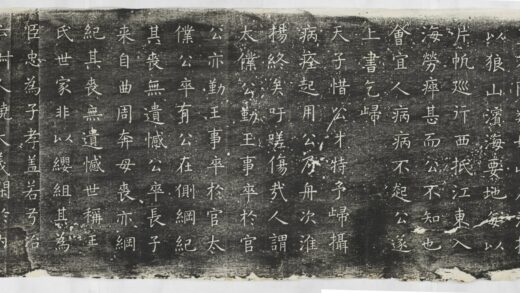 以狼山濱海要地每以
片帆巡行西抵江東入
海勞瘁甚而公不知也
會宜人病病不起公遂
上書乞歸
天子惜公才特予歸攝
病痊起用公方舟次淮
揚終矣吁嗟傷哉人謂
太僕公勤王事卒於官
公亦勤王事卒於官太
僕公卒有公在側綱紀
其喪無遺憾公卒長子
来自曲周奔母喪亦綱
紀其喪無遺憾世稱王
氏世家非以纓組其為
臣忠為子孝盖若弓冶